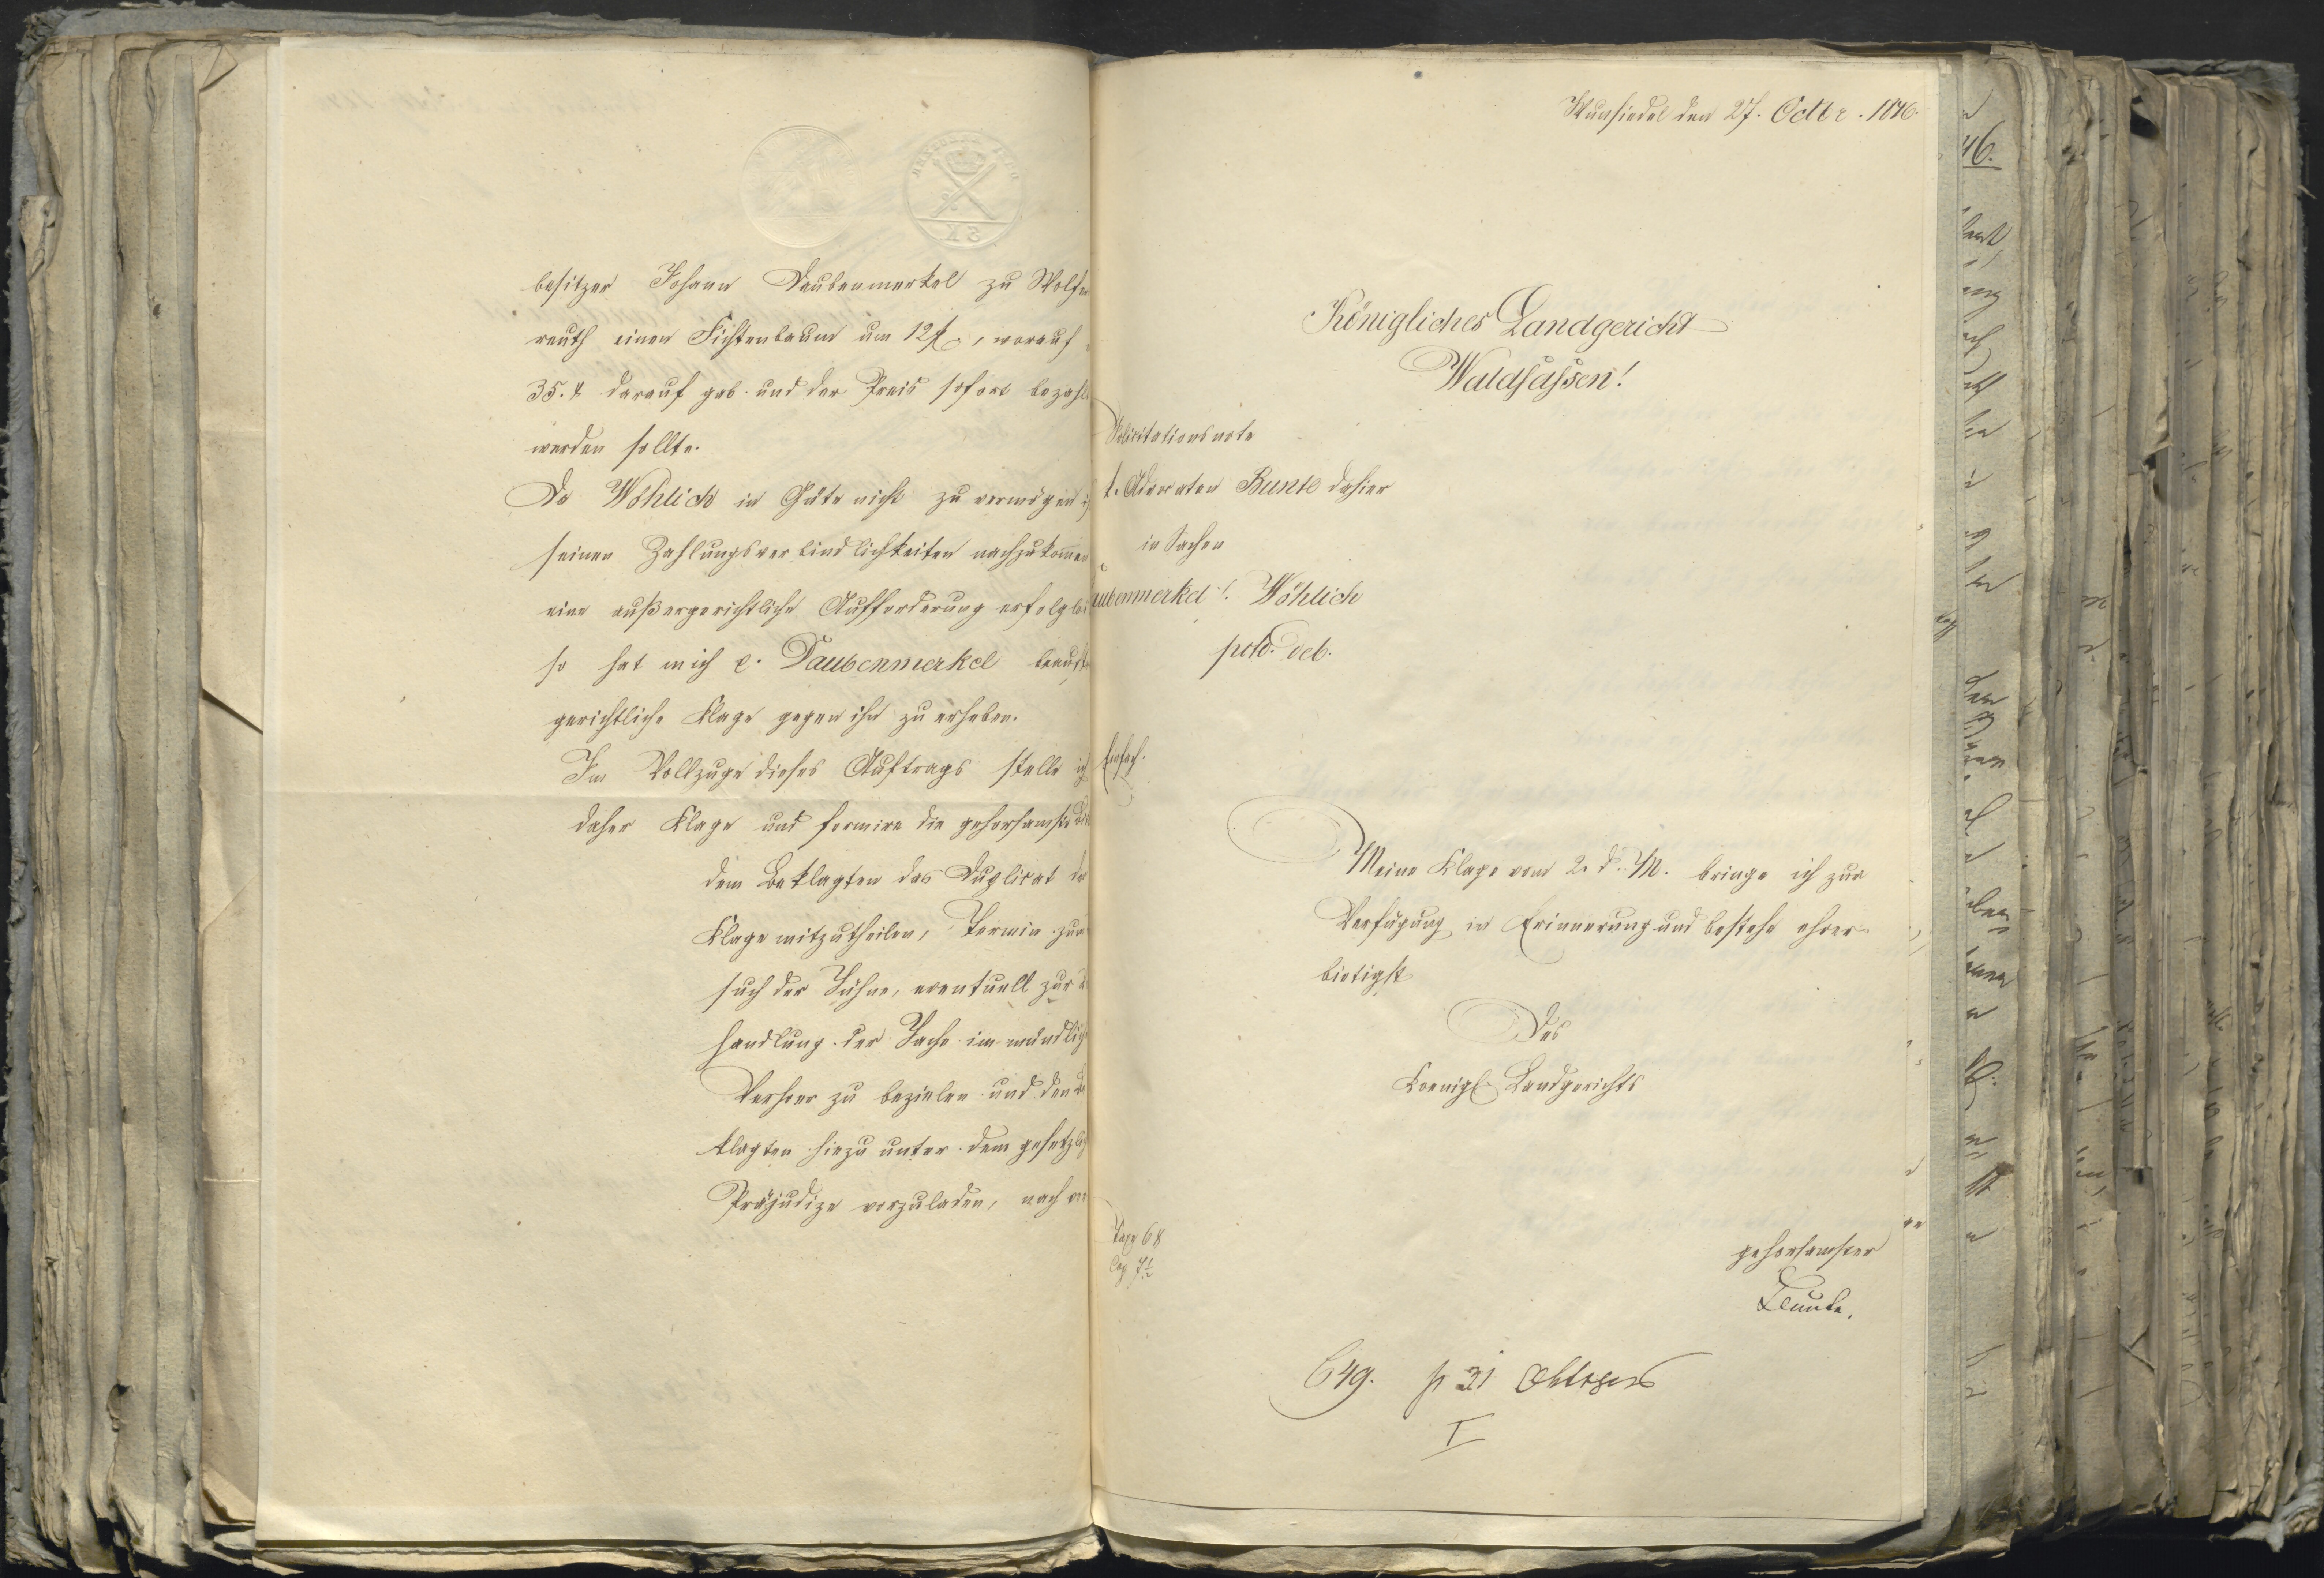 besitzer Johann Daubenmerkel zu Wolfers
reuth einen Fichtenbaum um 12 f, worauf
35. x darauf gab und der Preis sofort bezahlt
werden sollte.
Da Wöhlich in Güte nicht zu vermögen ist
seinen Zahlungsverbindlichkeiten nachzukommen
eine außergerichtliche Aufforderung erfolglos
so hat mich Daubenmerkel beauft
gerichtliche Klage gegen ihn zu erheben.
Im Vollzuge dieses Auftrags stelle ich
daher Klage und formire die gehorsamste Bitte
dem Beklagten das Duplicat der
Klage mitzutheilen, Termin zur
such der Sühne, eventuell zur
handlung der Sache im mündlich
Verhoer zu bezielen und den Be
klagten hiezu unter dem gesetzlich
Präjudize vorzuladen, nach
Wunsiedel den 27. Octbr. 1846.
Königliches Landgericht
Waldsaßen!
Solicitationsnote
k. Advocaten Bunte dahier
in Sachen
aubenmerkel /. Wöhlich
pcto. deb.
Einfach.
Meine Klage vom 2. d. M. bringe ich zur
Verfügung in Erinnerung und bestehe ehrer
bietigst
Des
Koenigl. Landgerichts
Taxe 6 x
gehorsamster
Bunte.
649. p 31 Oktober
I